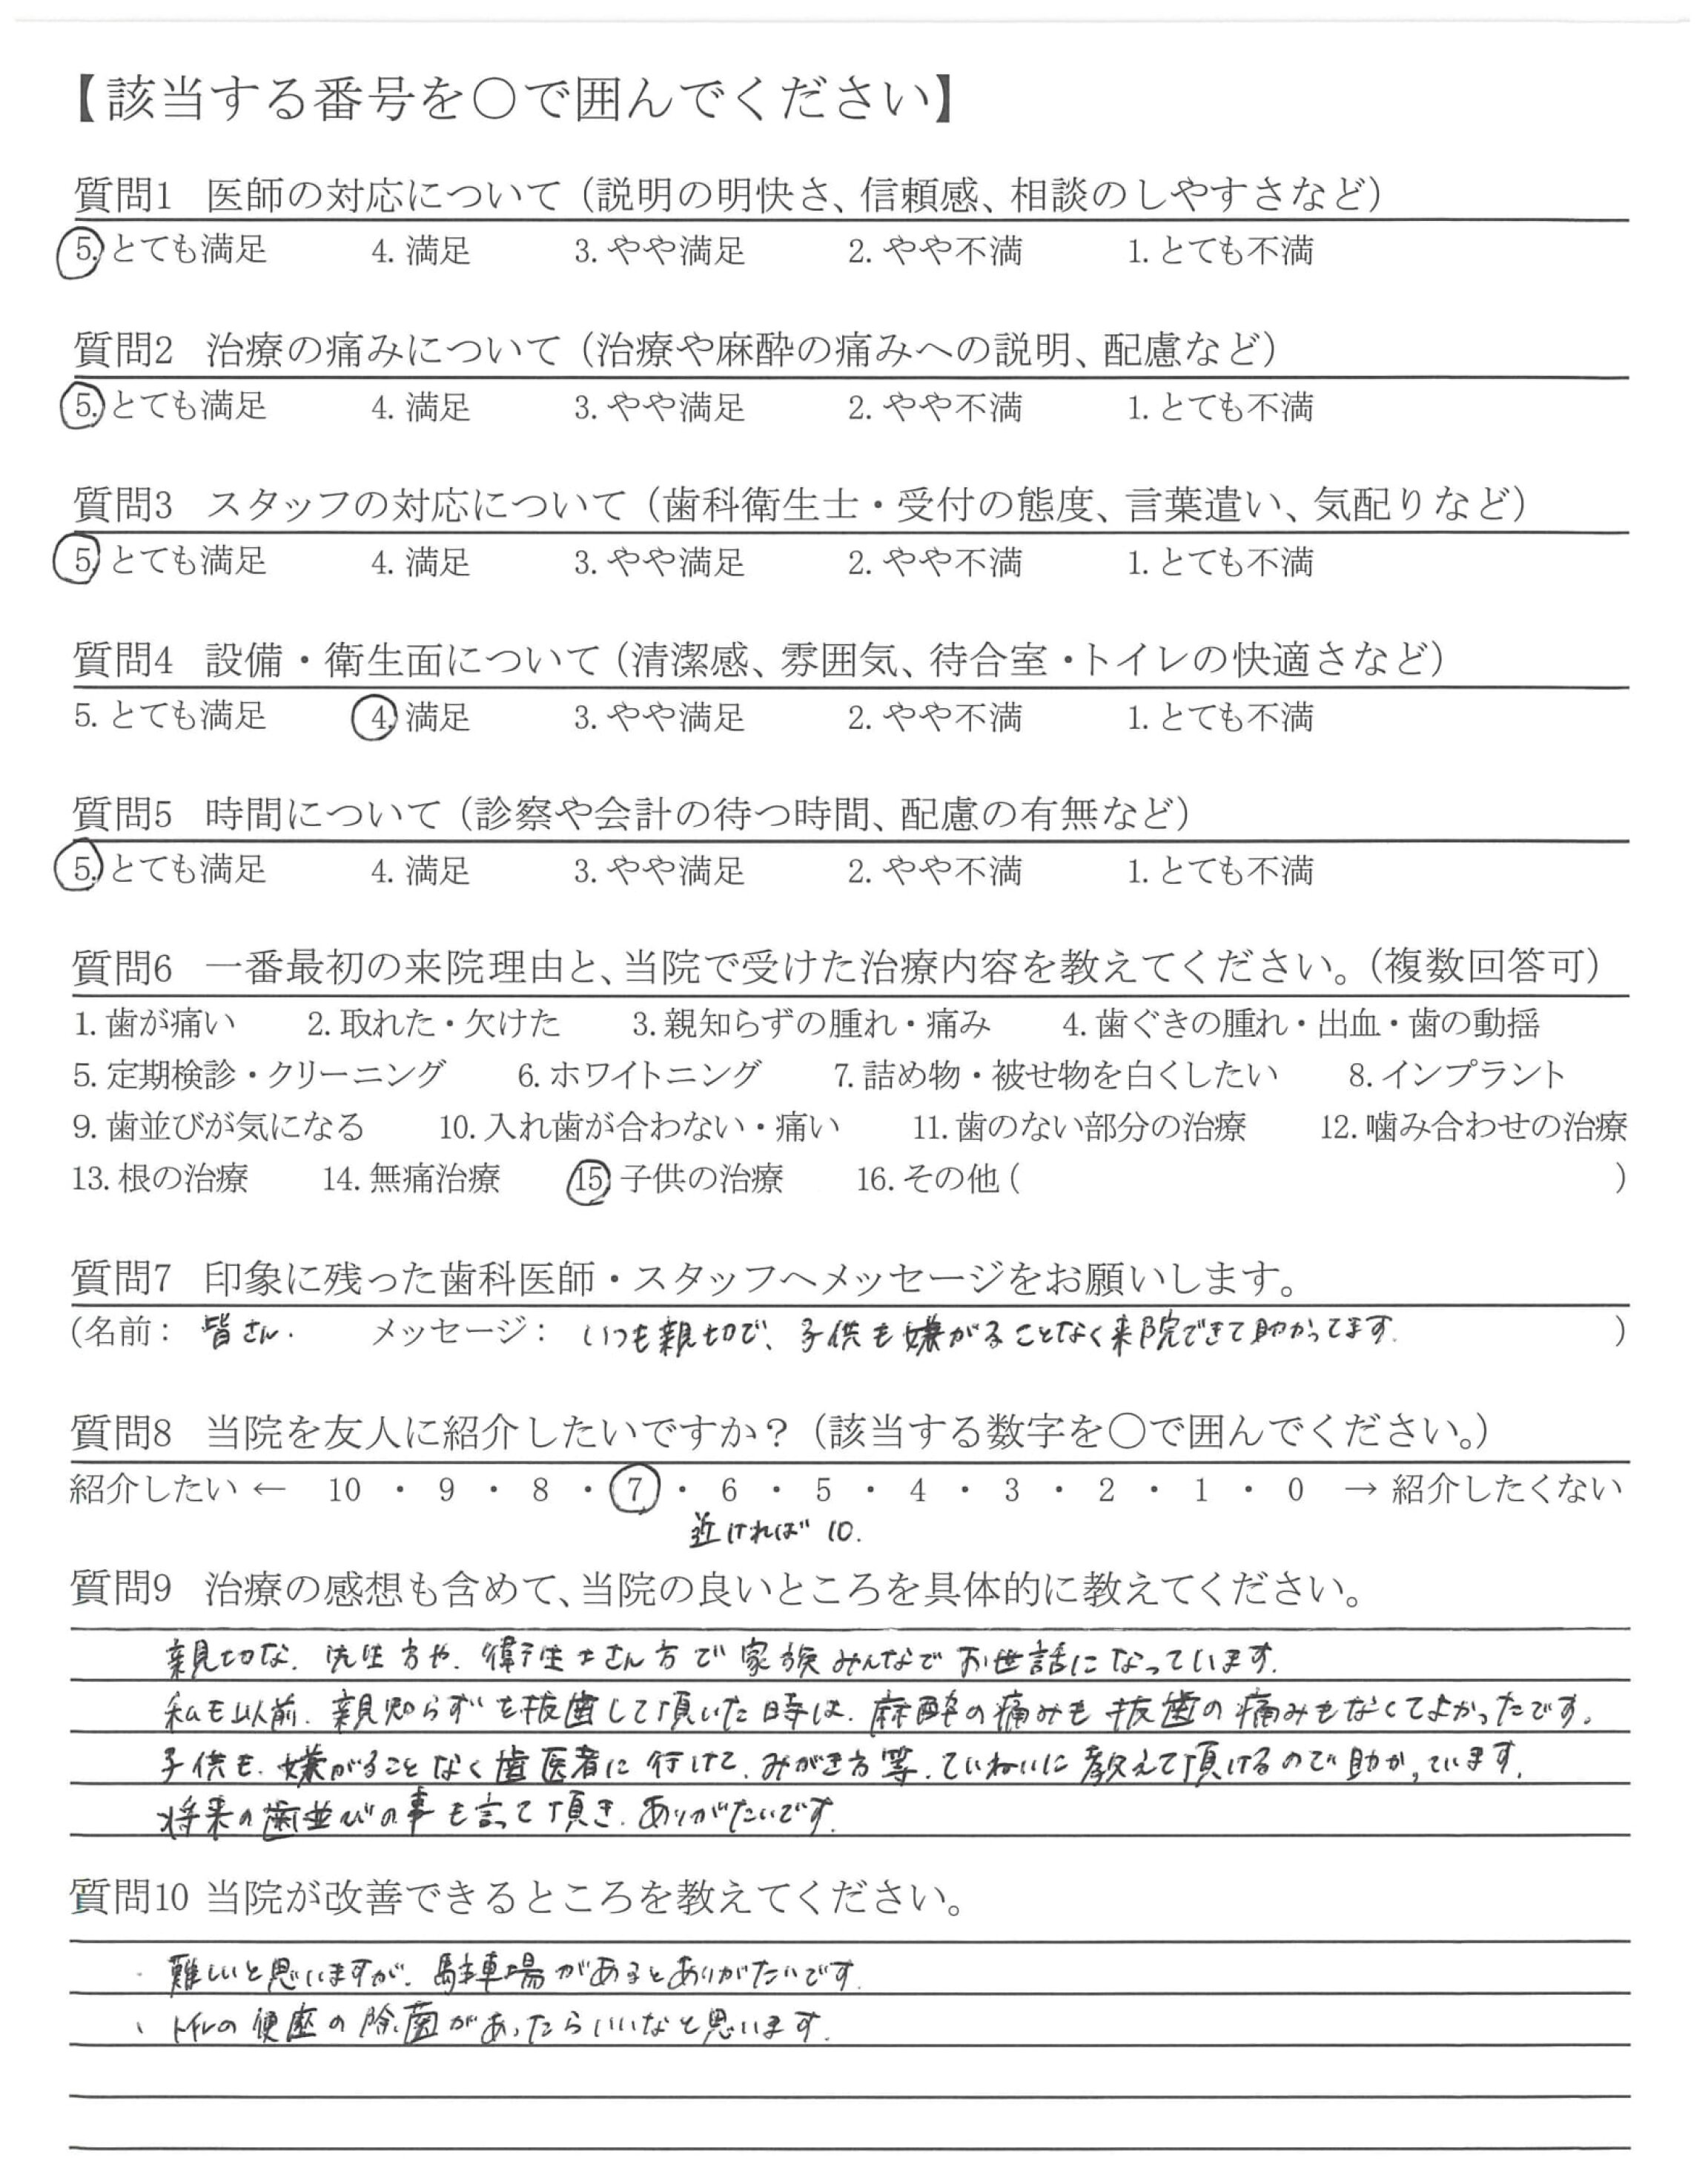 【該当する番号を〇で囲んでください】
質問1 医師の対応について（説明の明快さ、信頼感、相談のしやすさなど）
5. とても満足 4. 満足 3. やや満足 2. やや不満 1. とても不満
質問2 治療の痛みについて（治療や麻酔の痛みへの説明、配慮など）
5. とても満足 4. 満足 3. やや満足 2. やや不満 1. とても不満
質問3 スタッフの対応について（歯科衛生士・受付の態度、言葉遣い、気配りなど）
5. とても満足 4. 満足 3. やや満足 2. やや不満 1. とても不満
質問4 設備・衛生面について（清潔感、雰囲気、待合室・トイレの快適さなど）
5. とても満足 4. 満足 3. やや満足 2. やや不満 1. とても不満
質問5 時間について（診察や会計の待つ時間、配慮の有無など）
5. とても満足 4. 満足 3. やや満足 2. やや不満 1. とても不満
質問6 一番最初の来院理由と、当院で受けた治療内容を教えてください。（複数回答可）
1. 歯が痛い 2. 取れた・欠けた 3. 親知らずの腫れ・痛み 4. 歯ぐきの腫れ・出血・歯の動揺
5. 定期検診・クリーニング 6. ホワイトニング 7. 詰め物・被せ物を白くしたい 8. インプラント
9. 歯並びが気になる 10. 入れ歯が合わない・痛い 11. 歯のない部分の治療 12. 噛み合わせの治療
13. 根の治療 14. 無痛治療 15 子供の治療 16. その他（ ）
質問7 印象に残った歯科医師・スタッフへメッセージをお願いします。
（名前： 皆さん. メッセージ： いつも親切で、子供も嫌がることなく来院できて助かってます. ）
質問8 当院を友人に紹介したいですか？（該当する数字を〇で囲んでください。）
紹介したい ← 10 ・ 9 ・ 8 ・ 7 ・ 6 ・ 5 ・ 4 ・ 3 ・ 2 ・ 1 ・ 0 → 紹介したくない
近ければ 10.
質問9 治療の感想も含めて、当院の良いところを具体的に教えてください。
親切な. 先生方や. 衛生士さん方で 家族みんなで お世話に なっています.
私も以前. 親知らずを抜歯して頂いた時は. 麻酔の痛みも 抜歯の痛みもなくてよかったです.
子供も. 嫌がることなく歯医者に 行けて. みがき方等. ていねいに 教えて頂けるので助かっています.
将来の歯並びの事も言って頂き. ありがたいです.
質問10 当院が改善できるところを教えてください。
・ 難しいと思いますが. 駐車場があるとありがたいです.
、 トイレの便座の除菌があったらいいなと思います.